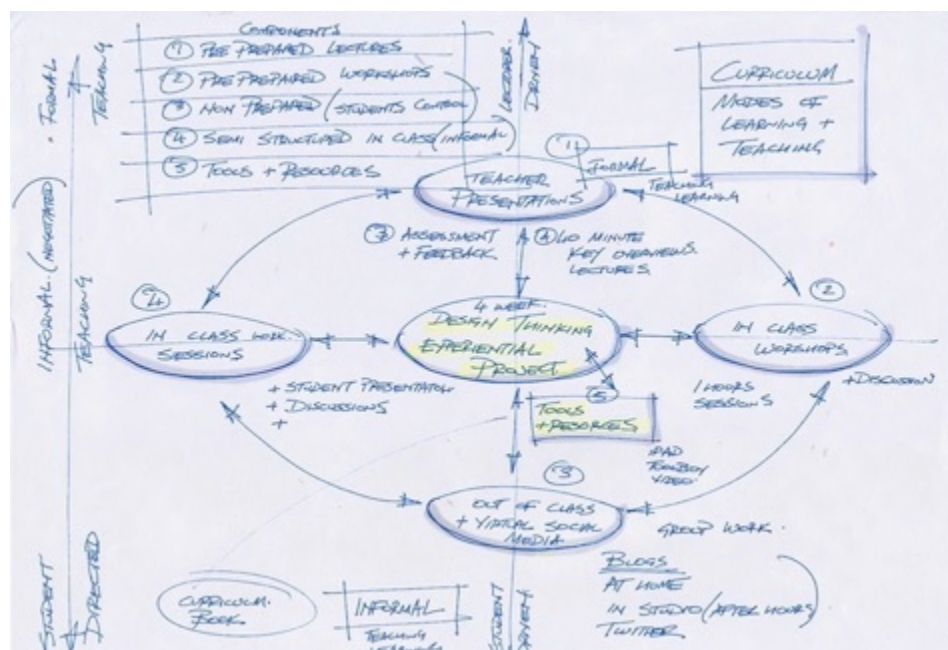 COMPONENTS
① PRE PREPARED LECTURES
② PRE PREPAIRED WORKSHOPS
③ NON PREPARED (STUDENTS CONTROL)
④ SEMI STRUCTURED IN CLASS (INFORMAL)
⑤ TOOLS + RESOURCES
• FORMAL
TEACHING
INFORMAL. (NEGOTIATED)
TEACHING
STUDENT
DIRECTED
DRIVEN
CURRICULUM
MODES OF
LEARNING +
TEACHING
①
TEACHER
PRESENTATIONS
FORMAL
TEACHING
LEARNING
ASSESSMENT
+ FEEDBACK
40 MINUTE
KEY OVERVIEWS
LECTURES
④
IN CLASS WORK
SESSIONS
4 WEEK.
DESIGN THINKING
EXPERIENTIAL
PROJECT
②
IN CLASS
WORKSHOPS
+ STUDENT PRESENTATION
+ DISCUSSIONS
+
⑤
TOOLS
+ RESORCES
1 HOURS
SESSIONS
+ DISCUSSION
IPAD
VIDEO
③
OUT OF CLASS
+ VIRTUAL SOCIAL
MEDIA
GROUP WORK.
BLOGS
AT HOME
IN STUDIO (AFTER HOURS)
TWITTER
CURRICULUM.
BOOK
INFORMAL
TEACHING
LEARNING
STUDENT
DRIVEN